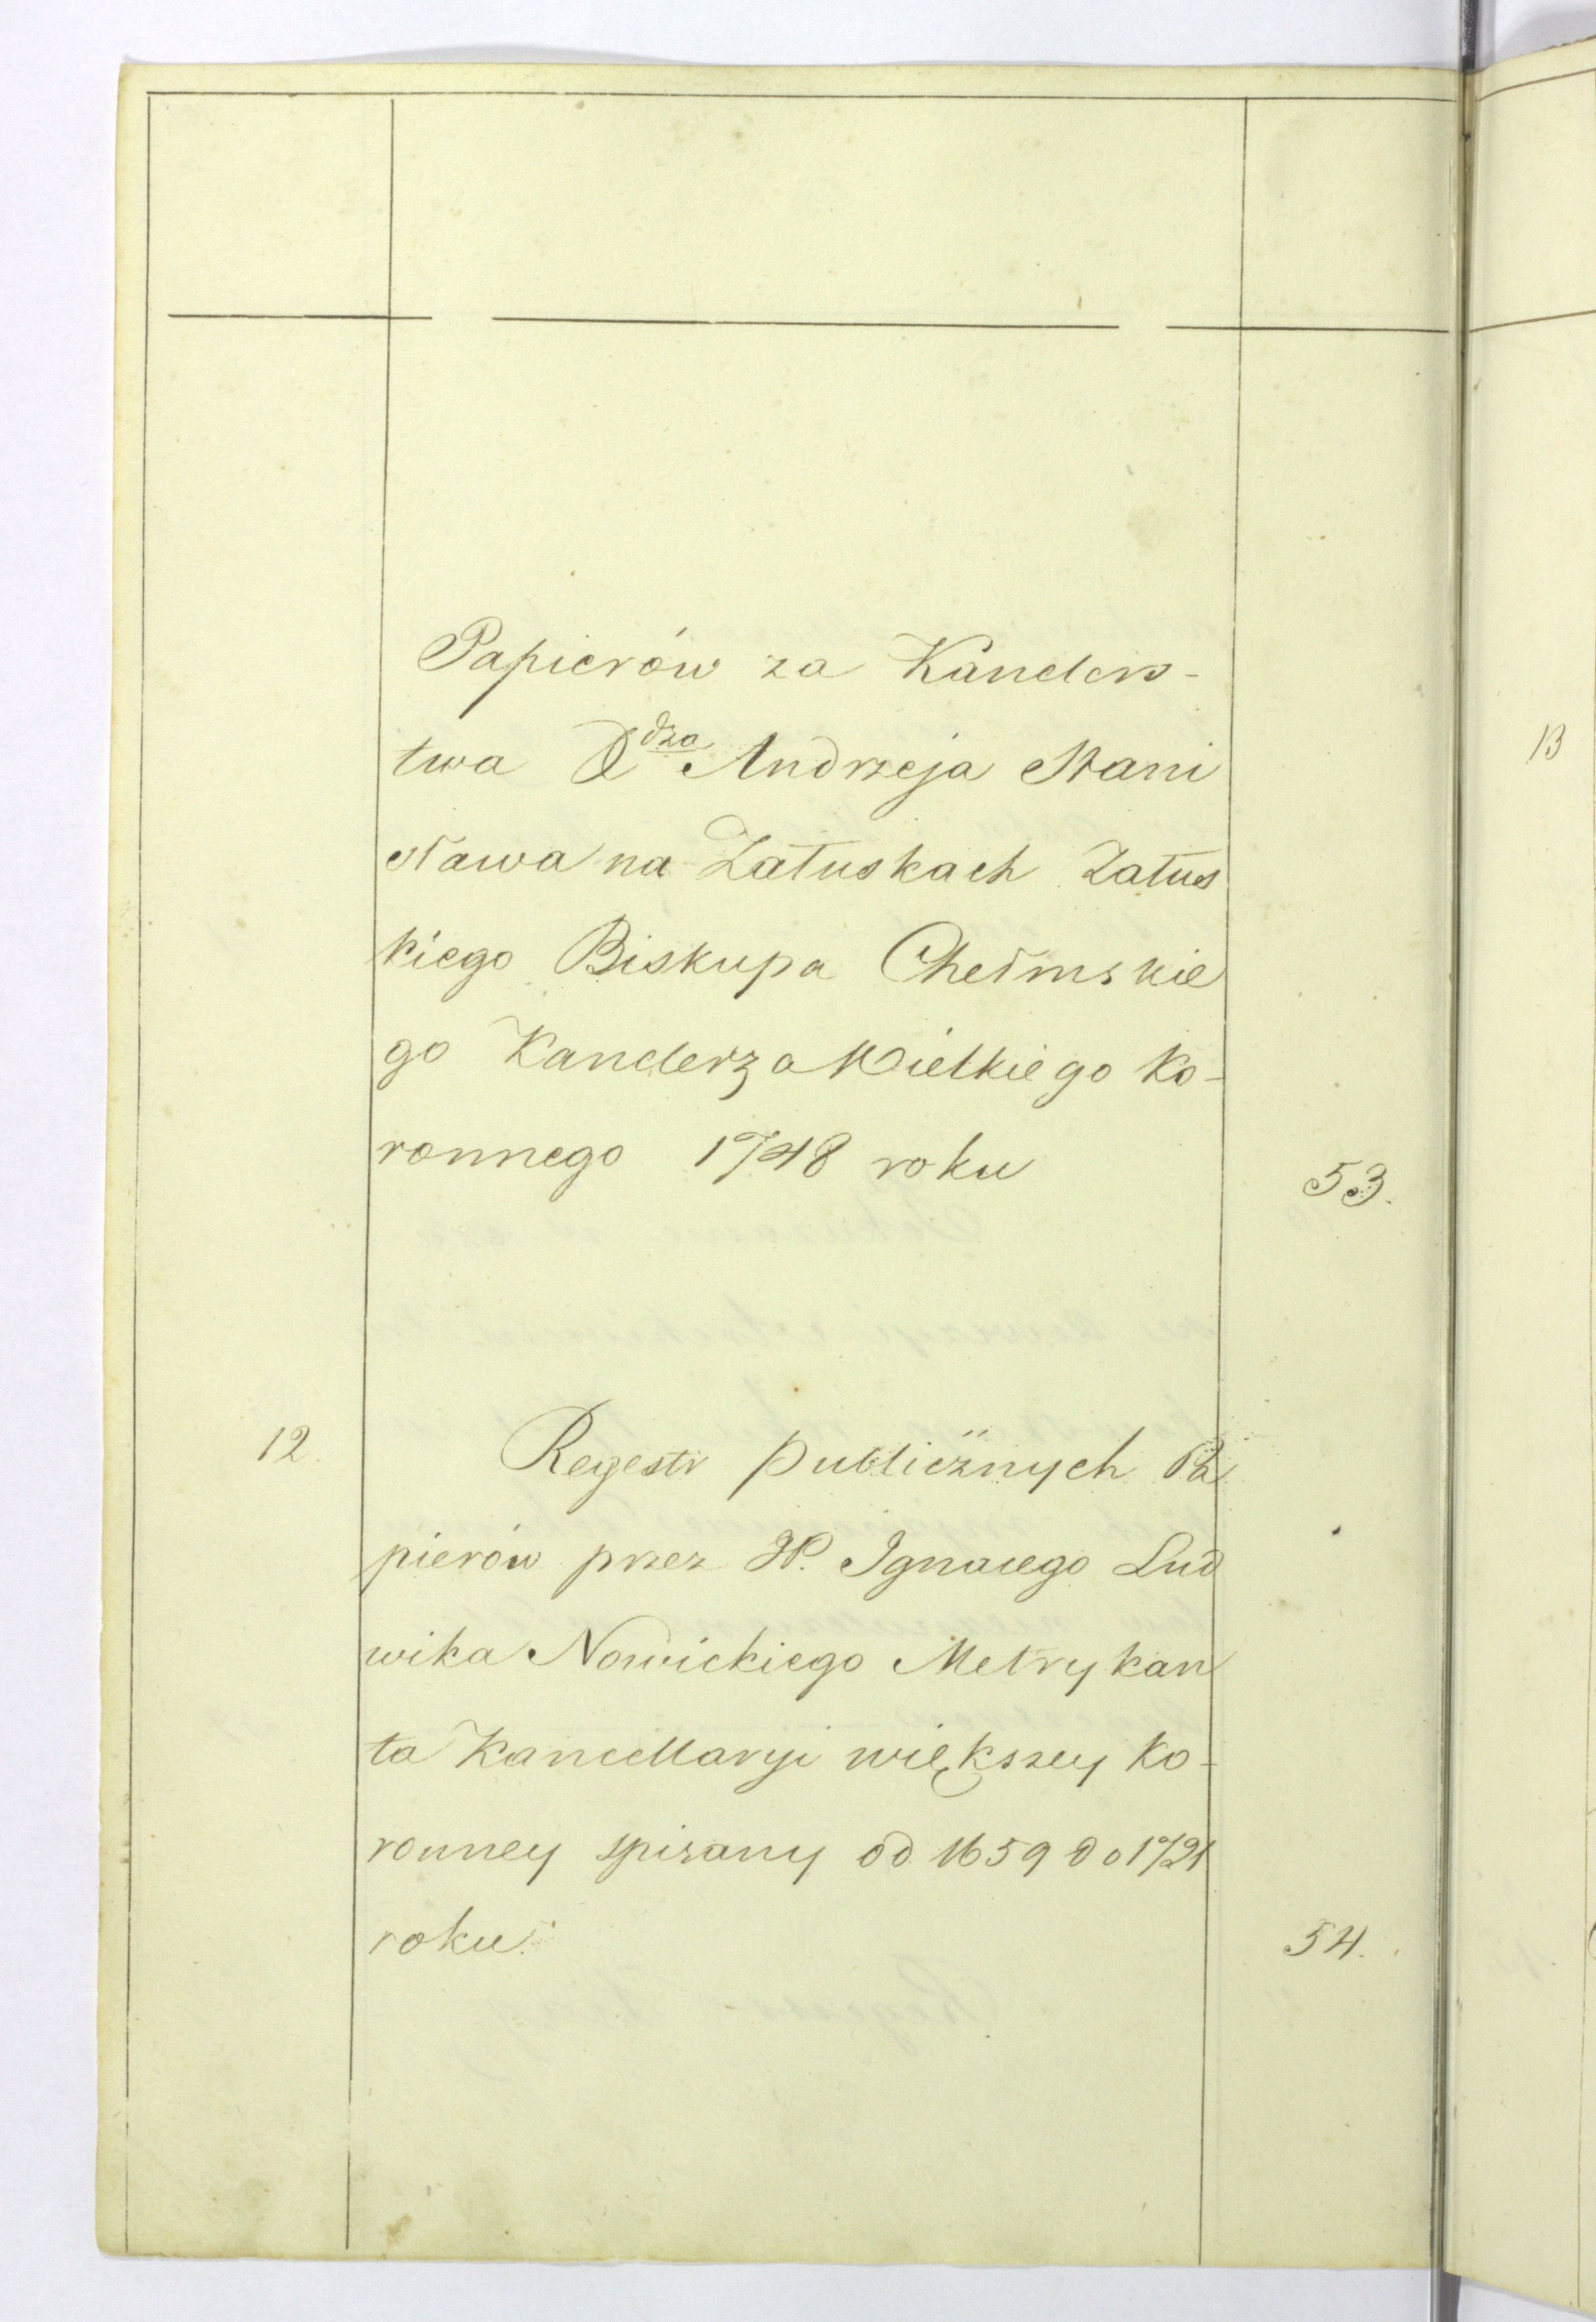 Papierów za Kanclers-
twa Xdza Andrzeja Stani
sława na Załuskach Załus
kiego Biskupa Chełmskie
go Kanclerza Wielkiego Ko-
ronnego 1748 roku
53.
12.
Regestr publicznych Pa
pierów przez JP. Ignacego Lud
wika Nowickiego Metrykan
ta Kancellaryi większey Ko-
ronney spisany od 1659 do 1721
roku.
54.
13